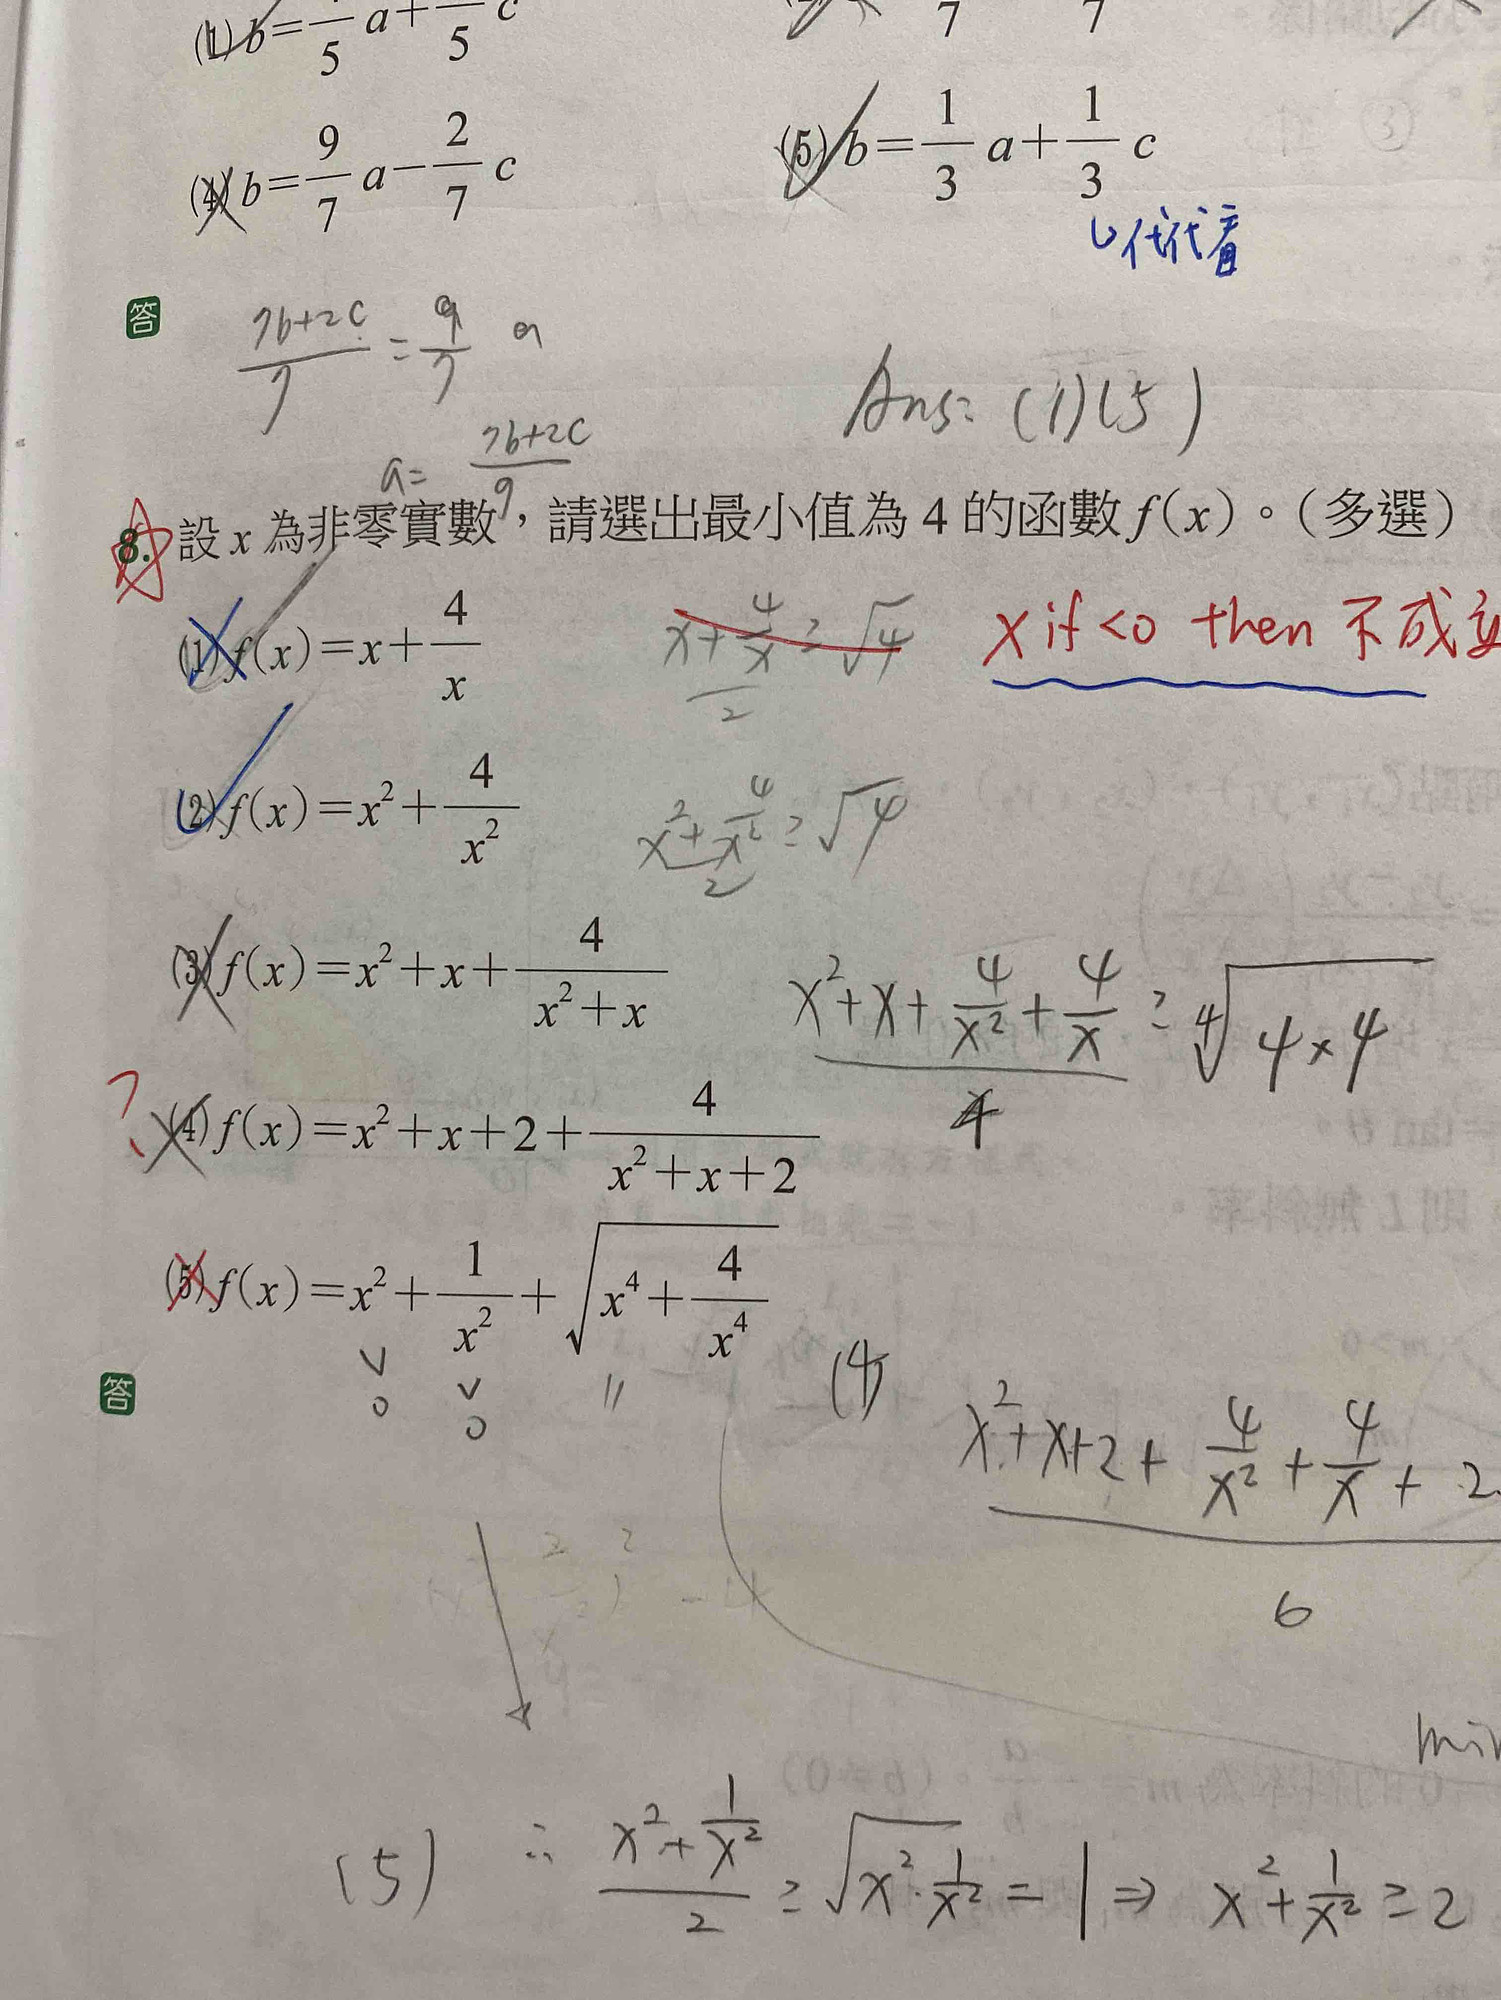 (1) b=—/5 a+—/5 c
7 7
(4) b=9/7 a−2/7 c
(5) b=1/3 a+1/3 c
代代看
答
7b+2c/7 = 9/7 a
Ans: (1)(5)
a= 7b+2c/9
8. 設 x 為非零實數，請選出最小值為 4 的函數 f(x)。（多選）
(1) f(x)=x+4/x
x+4/x/2 ≥ √4
x if <0 then 不成立
(2) f(x)=x²+4/x²
x²+4/x²/2 ≥ √4
(3) f(x)=x²+x+4/x²+x
x²+x+4/x²+4/x/4 ≥ ⁴√4×4
?
(4) f(x)=x²+x+2+4/x²+x+2
(5) f(x)=x²+1/x²+√x⁴+4/x⁴
答
∨ 0
∨ 0
(4)
x²+x+2+4/x²+4/x+2/6
(5) ∴ x²+1/x²/2 ≥ √x²·1/x² = 1 ⇒ x²+1/x² ≥ 2